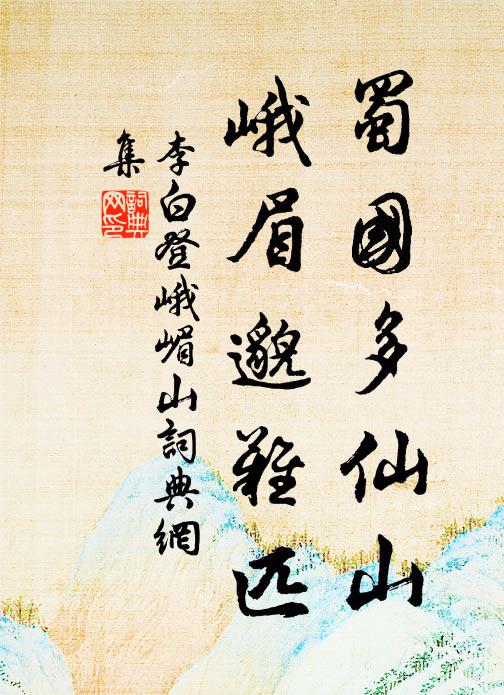 蜀國多仙山
峨眉邈難匹
李白登峨嵋山詞典網
集
詞典
网印